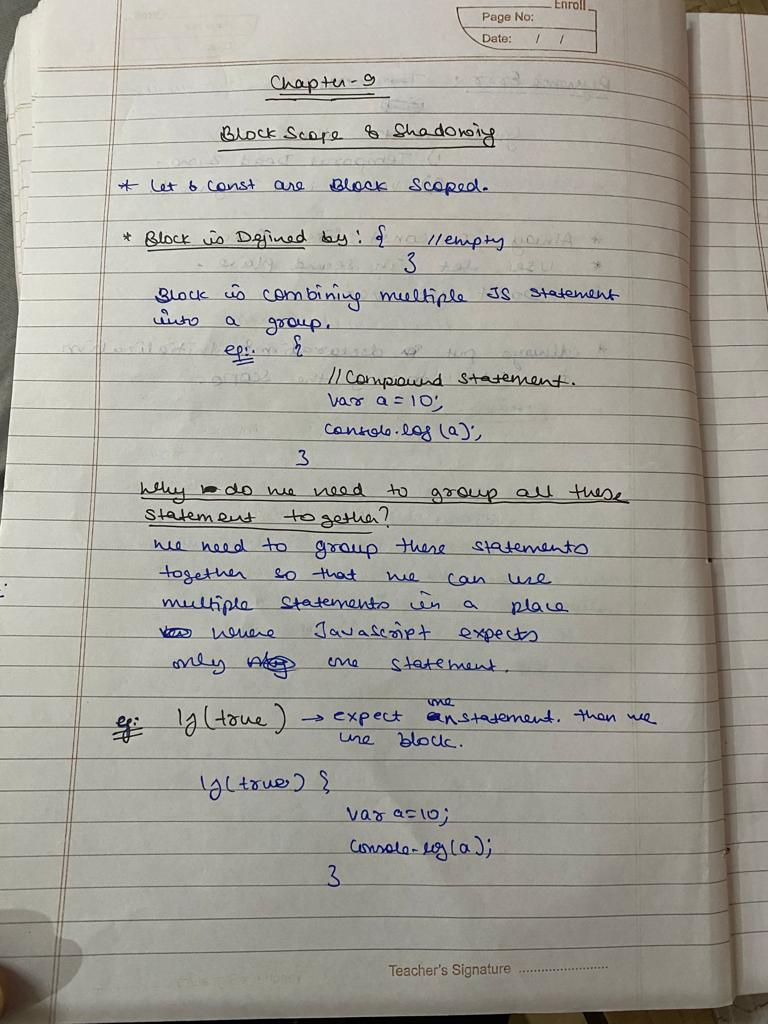 Enroll
Page No:
Date: / /
Chapter-9
Block Scope & Shadowing
* Let & const are Block Scoped.
* Block is Defined by: { //empty
}
Block is combining multiple JS statement
into a group.
eg:. {
//Compound statement.
var a = 10;
console.log (a);
}
Why do we need to group all these
statement together?
we need to group these statements
together so that we can use
multiple statements in a place
where Javascript expects
only one statement.
eg: If (true) → expect one statement. then we
use block.
If (true) {
var a=10;
console.log(a);
}
Teacher's Signature ........................